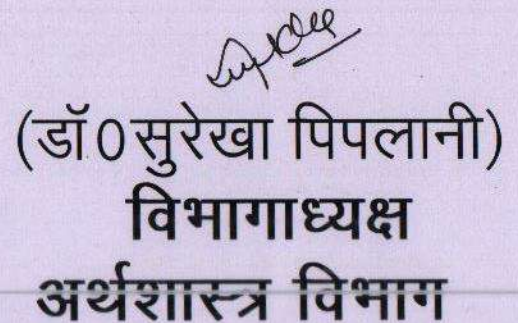 (डॉ0सुरेखा पिपलानी)
विभागाध्यक्ष
अर्थशास्त्र विभाग